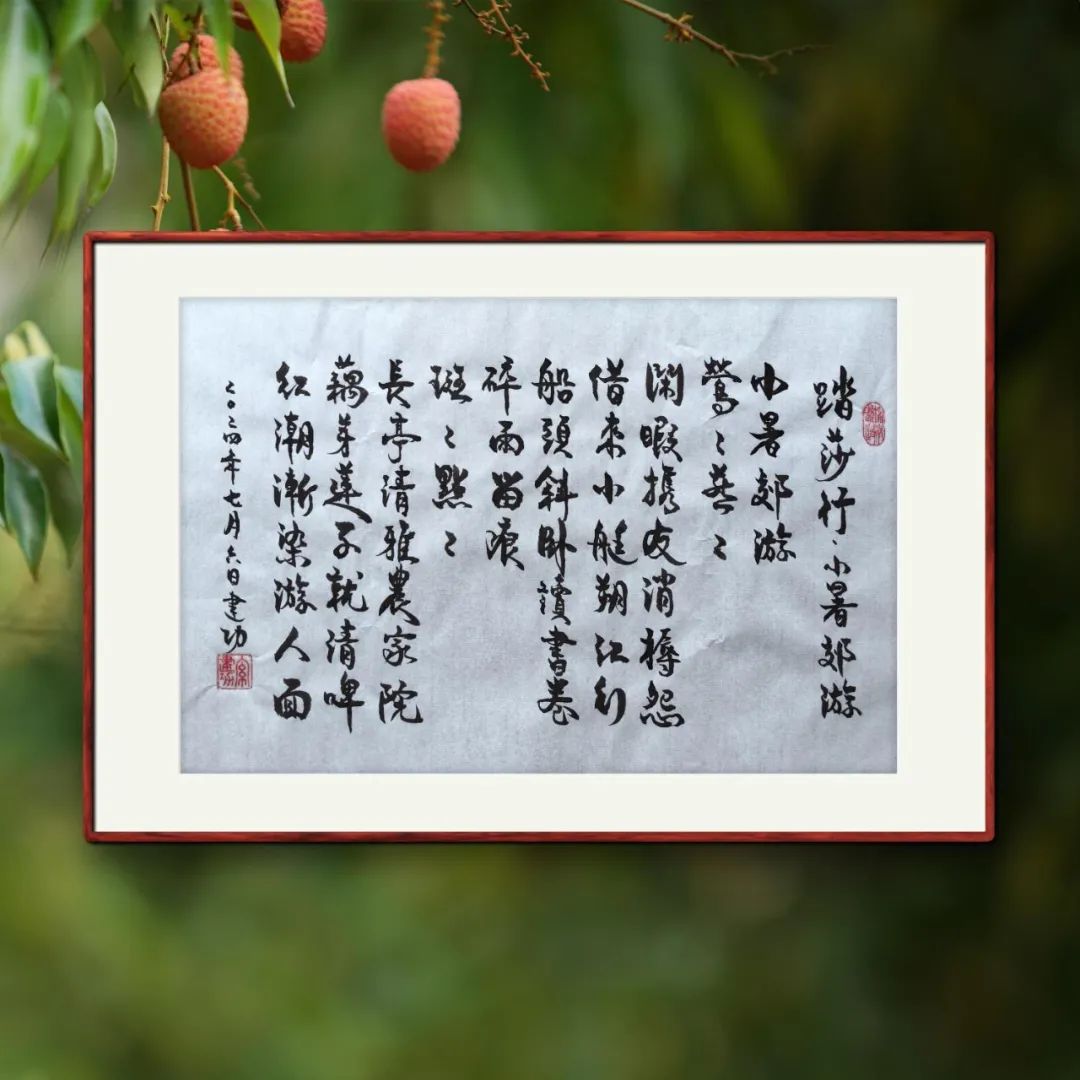 踏莎行、小暑郊游
小暑郊游
鶯〻燕〻
閑暇携友消褥怨
借來小艇朔江行
船頭斜卧讀書卷
碎雨留痕
斑〻點〻
長亭清雅農家院
藕芽蓮子就清啤
紅潮漸染游人面
二〇二四年七月六日建功